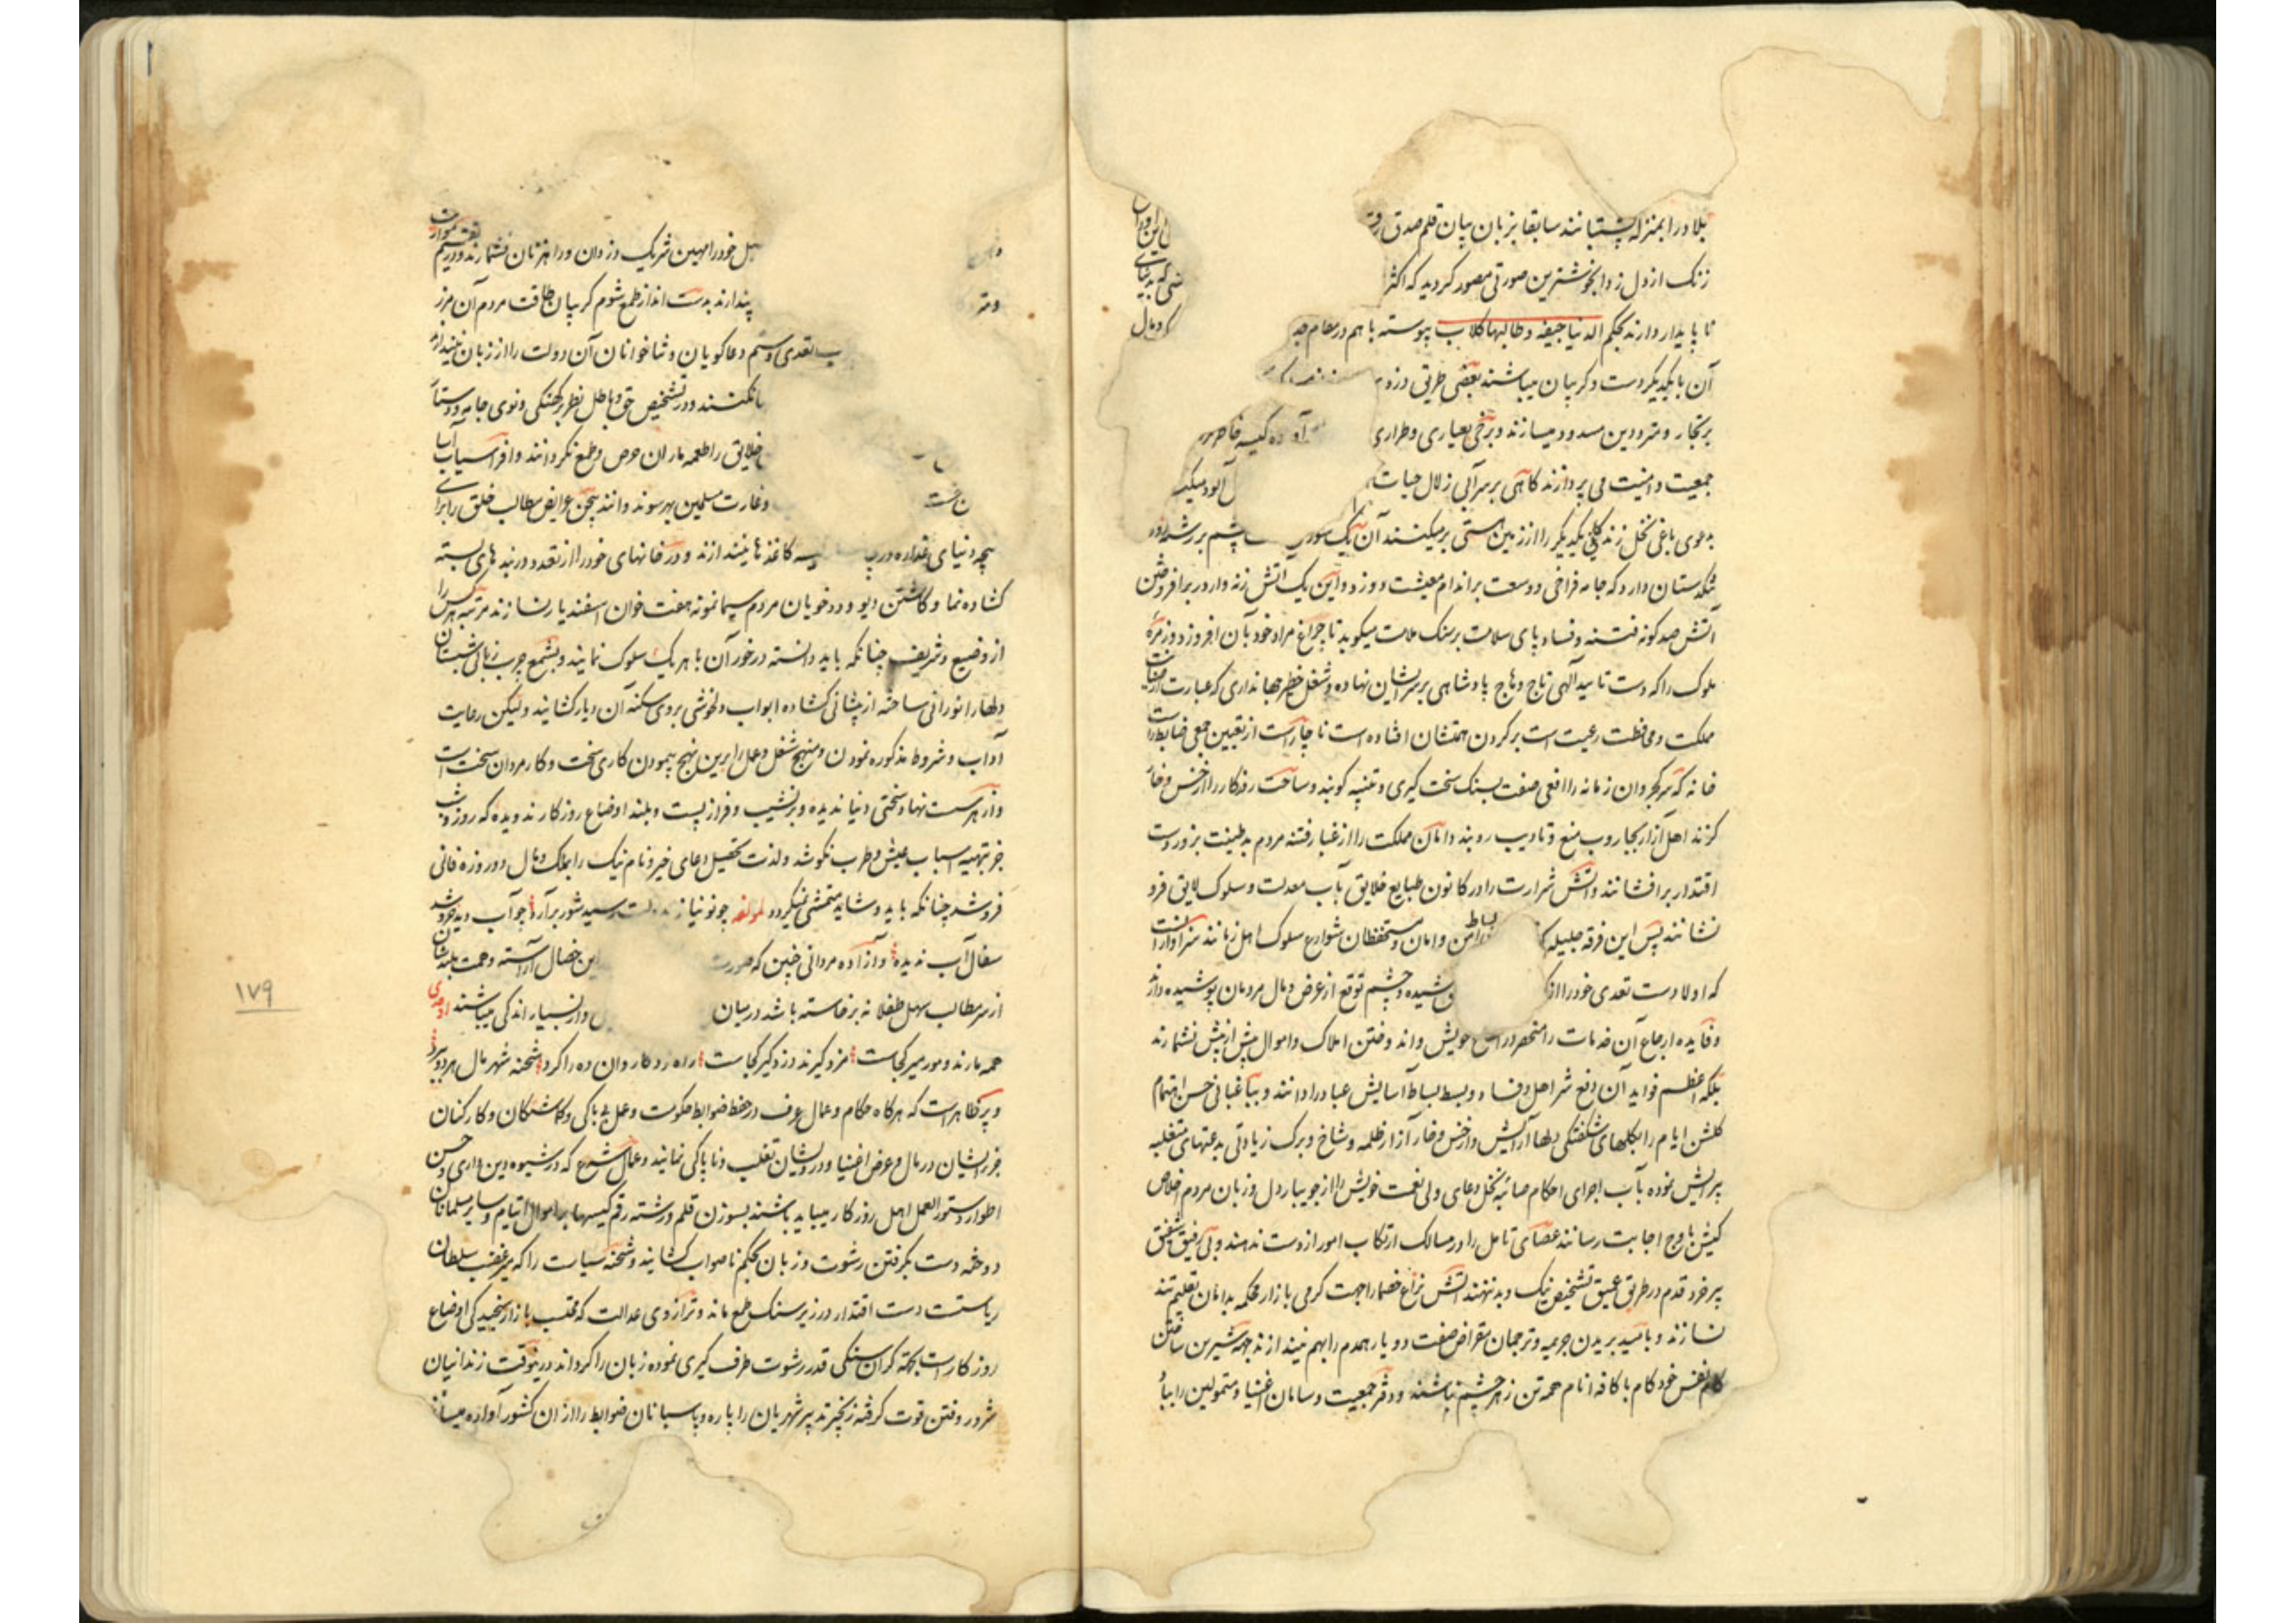 بلا دور را بمنزله پشتیبانند سابقا بزبان بیان قلم صدق
زنک از دل زدا بخوشترین صورتی مصور کردید که اکثر
نا پایدار دارند بحکم الدنیا جیفه و طالبها کلاب پیوسته با هم در مقام
آن با یکدیگر دست و کریبان میباشند بعضی طریق
بر تجار و مترددین مسدود میسازند و برخی بعیاری و طراری
جمعیت و امنیت می پردازند کاهی بر سر آبی زلال حیات
بدعوی باغی نخل زندکی یکدیگر را از زمین هستی برمیکنند آن یک
تنکدستان دارد که جامه فراخی و وسعت بر اندام معیشت دوزد و این یک آتش زنه دارد بر افروختن
آتش صد کونه فتنه و فساد پای سلامت بر سنک ملامت میکوبد تا چراغ مراد خود بآن افروزد و زمرهٔ
ملوک را که دست تایید آلهی تاج وهاج پادشاهی بر سر ایشان نهاده و شغل خطیر جهانداری که عبارت از
مملکت و محافظت رعیت است بر کردن همتشان افتاده است ناچار است از تعیین جمعی
خانه که سر کجروان زمانه را افعی صفت بسنک سخت کیری و تنبیه کوبند و ساحت روزکار را از خس و خار
کزند اهل آزار بجاروب منع و تادیب روبند دامان مملکت را از غبار فتنه مردم بدطینت بزور دست
اقتدار برافشانند و آتش شرارت را در کانون طبایع خلایق بآب معدلت و سلوک لایق فرو
نشانند پس این فرقه جلیله که بساط امن و امان و مستحفظان شوارع سلوک اهل زمانند سزاوار است
که اولا دست تعدی خود را از کشیده و چشم توقع از عرض و مال مردمان پوشیده دارند
و فایده ارجاع آن خدمات را منحصر در خویش و اندوختن املاک و اموال بیش از پیش نشمارند
بلکه اعظم فواید آن دفع شر اهل فساد و بسط بساط آسایش عباد را دانند و بباغبانی حسن اهتمام
کلشن ایام را بکلهای شکفتکی دلها آرایش و از خس و خار آزار ظلمه و شاخ و برک زیادتی بدعتهای متغلبه
پیرایش نموده بآب اجرای احکام صائبه نخل دعای ولی نعمت خویش را از جویبار دل و زبان مردم اخلاص
کیش باوج اجابت رسانند عصای تامل را در مسالک ارتکاب امور از دست ندهند و بی رفیق شفیق
پیر خرد قدم در طریق عمیق تشخیص نیک و بد ننهند آتش نزاع خصما را جهت کرمی بازار محکمه بدامان تعلیم تند
نسازند و بامید بریدن جریمه و ترجمان مقراض صفت دو یار همدم را بهم نیندازند جهت شیرین ساختن
کام نفس خود کام با کافه انام همه تن زهر چشم نباشند و دفتر جمعیت و سامان اغنیا و متمولین را
خود را مهین شریک دزدان و راهزنان نشمارند و
پندارند بدست انداز طمع شوم کریبان طاقت مردم آن مرز
تعدی و ستم دعاکویان و ثناخوانان آن دولت را از زبان نیندازند
نکنند و در تشخیص حق و باطل نظر بر کهنکی و نوی جامه
خلایق را طعمه ماران حرص و طمع نکردانند و افراسیاب آسا
و غارت مسلمین بهر سو ندوانند پیچش عرایض مطالب خلق را برای
پیچه دنیای غداره کاغذها نیندازند و در خانهای خود را از تعدد دربندهای بسته
کشاده نما و کماشتن دیو و ددخویان مردم سیما نمونه هفت خوان اسفندیار نسازند مرتبه هر کس را
از وضیع و شریف چنانکه باید دانسته در خور آن با هر یک سلوک نمایند و بشمع چرب زبانی شبستان
دلها را نورانی ساخته از پیشانی کشاده ابواب دلخوشی بروی سکنه آن دیار کشایند ولیکن رعایت
آداب و شروط مذکوره نمودن و منهج شغل و عمل را برین نهج پیمودن کاری سخت و کار مردان سخت است
و از هر سست نهاد سختی دنیا ندیده و بر نشیب و فراز پست و بلند اوضاع روزکار ندویده که روز و شب
جز بتهیه اسباب عیش و طرب نکوشد و لذت تحصیل دعای خیر و نام نیک را بملک و مال دو روزه فانی
فروشد چنانکه باید و شاید متمشی نمیکردد لمولفه چو نو نیاز بدولت رسید شور برآرد چو آب دید خروشد
سفال آب ندیده و آزاده مردانی چنین که صورت این خصال آراسته و همت بلندشان
از سر مطالب سهل طفلانه برخاسته باشد در میان و از بسیار اندکی میباشند اوحدی
همه مارند و مور میر کجاست مزد کیرند دزد کیر کجاست راه زد کاروان ده را کرد شحنه شهر مال هر دو ببرد
و پر ظاهر است که هر کاه حکام و عمال عرف در حفظ ضوابط حکومت و عمل بی باکی و کماشتکان و کارکنان
جزء ایشان در مال و عرض اغنیا و درویشان تغلب و ناپاکی نمایند و عمال شرع که در شیوه دین داری و حسن
اطوار دستور العمل اهل روزکار میباید باشند بسوزن قلم و رشته رقم کیسها بر اموال ایتام و سایر مسلمانان
دوخته دست بکرفتن رشوت و زبان بحکم ناصواب کشایند و شحنه سیاست را که میر غضب سلطان
ریاستست دست اقتدار در زیر سنک طمع ماند و ترازوی عدالت که محتسب بازار سنجیدکی اوضاع
روزکار است بجهة کران سنکی قدر رشوت طرف کیری نموده زبان را کرداند درینوقت زندانیان
شرور و فتن قوت کرفته زنجیر تدبیر شهریان را پاره و پاسبانان ضوابط را از آن کشور آواره میسازند
۱۷۹